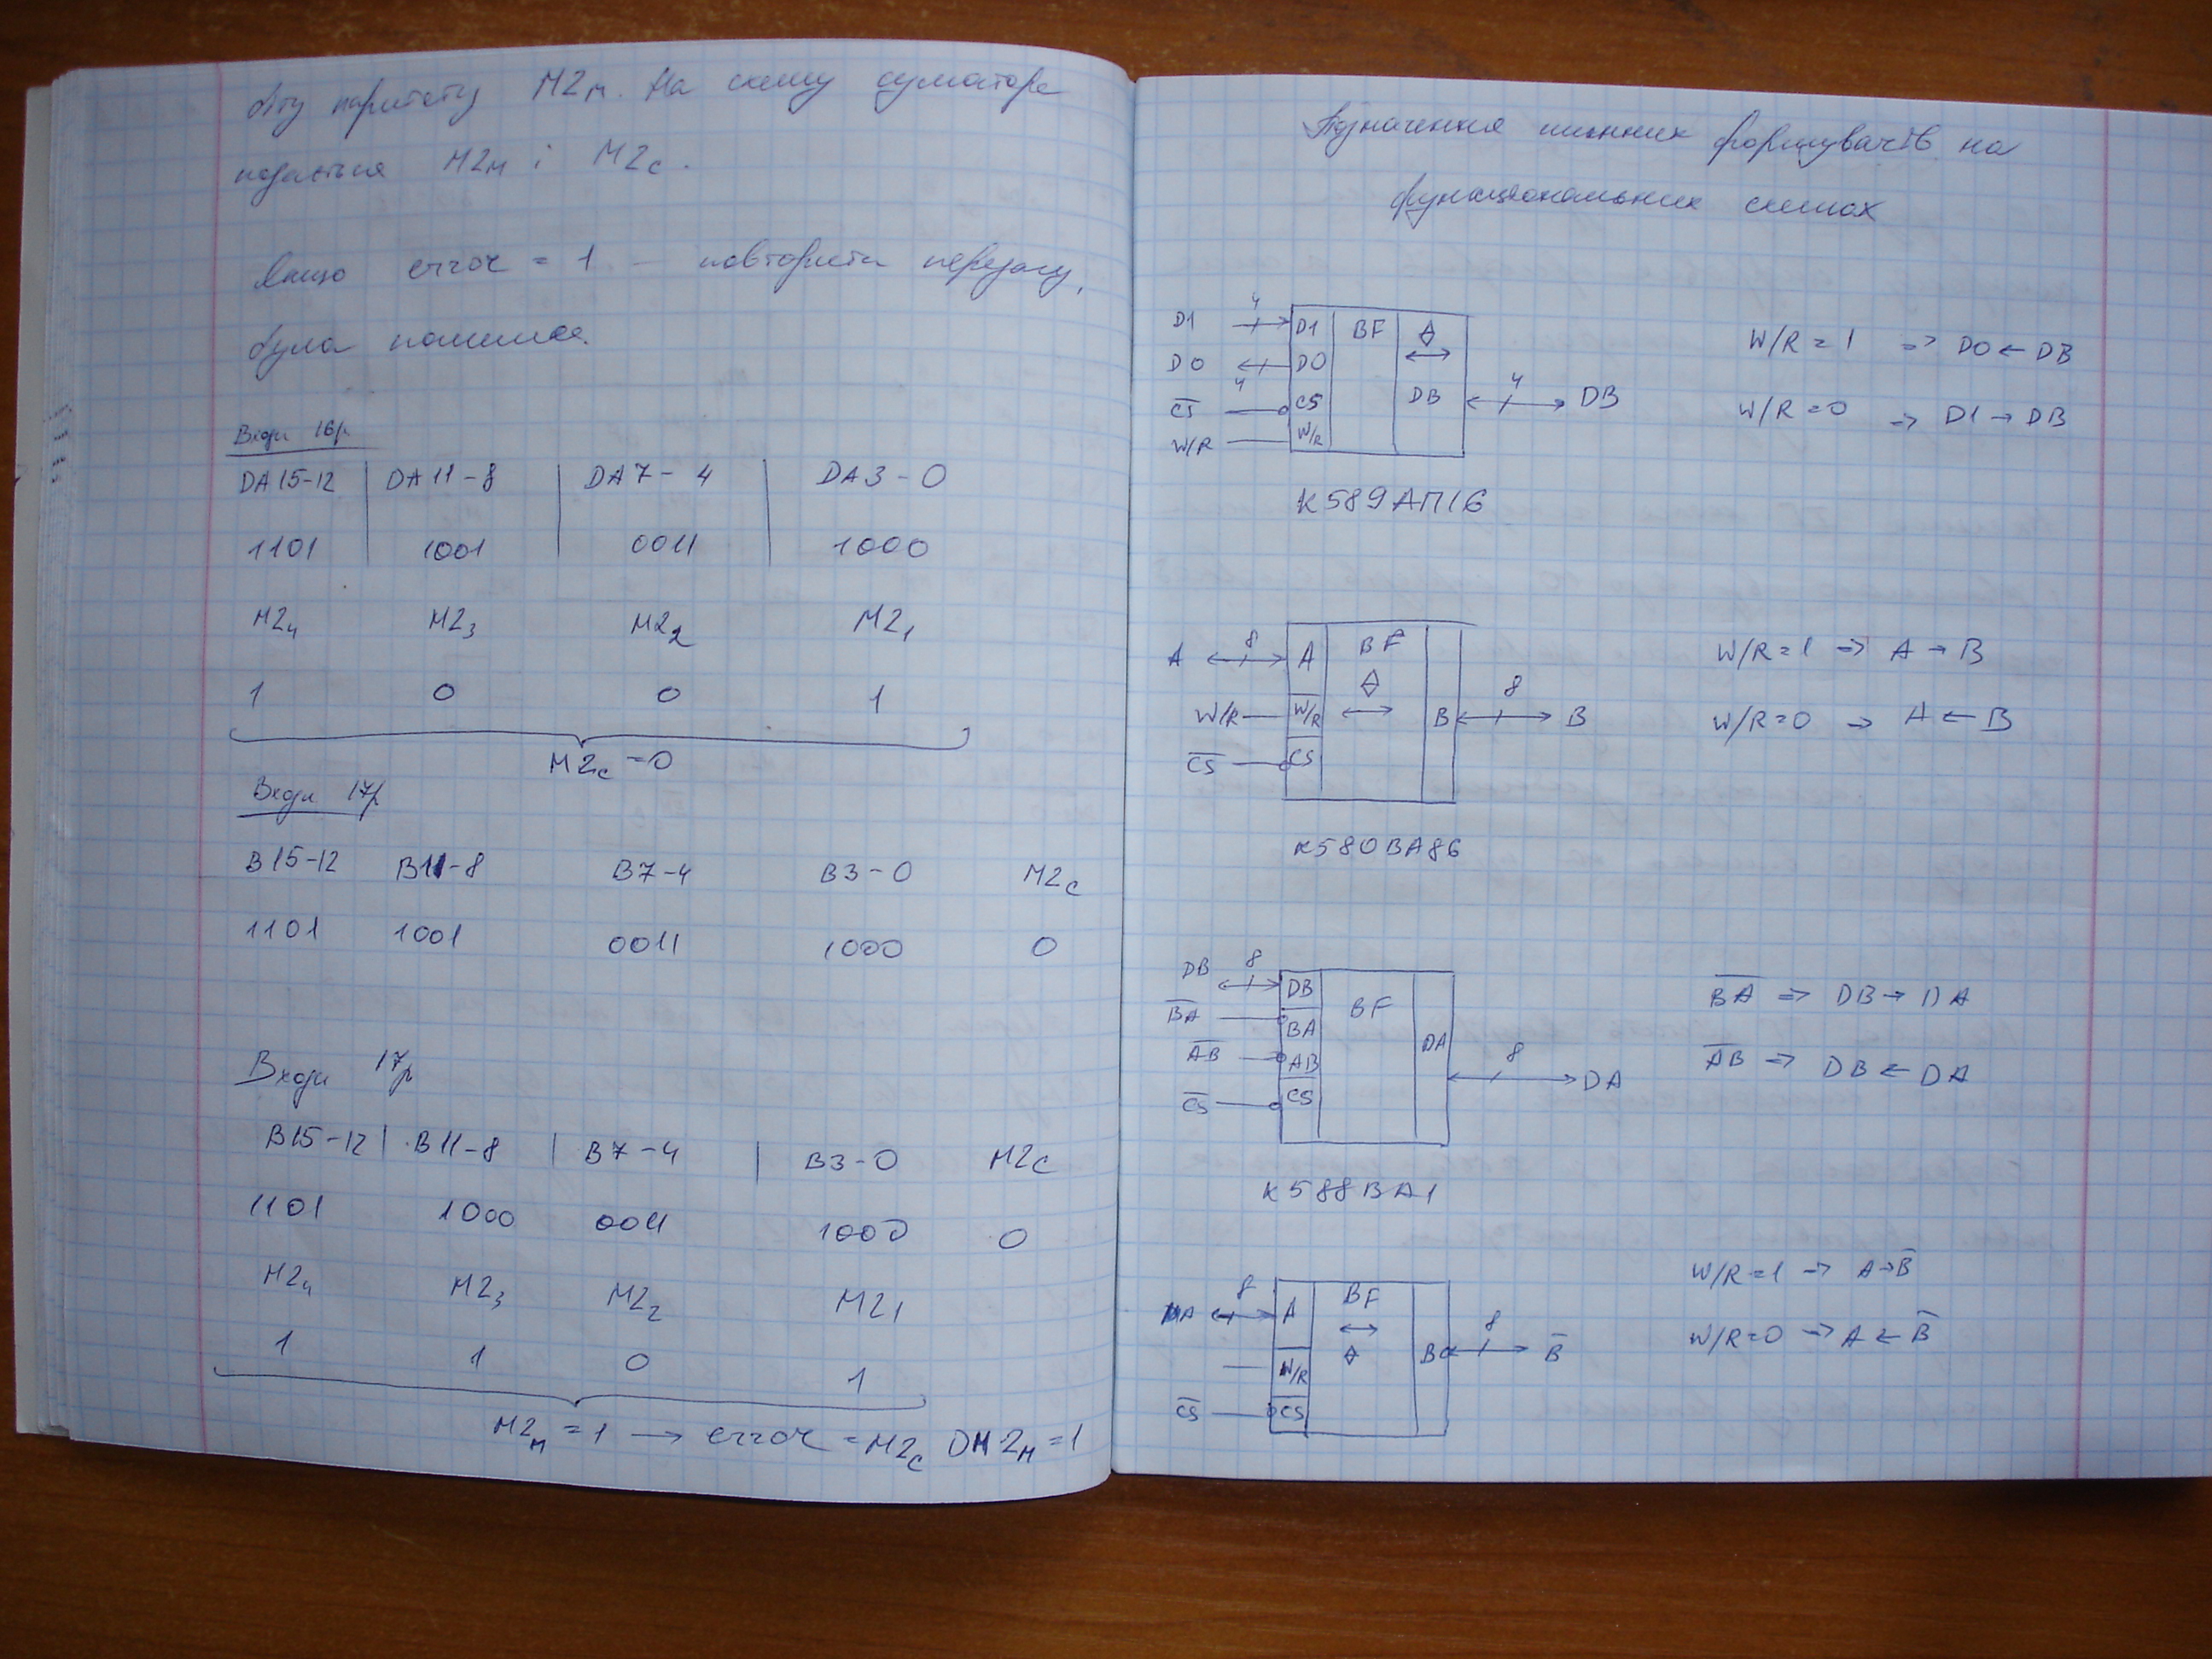 біту паритету M2м. На схему суматора
подається M2м і M2с.
Якщо error = 1 – повторити передачу,
була помилка.
Входи 16р
DA15-12 | DA11-8 | DA7-4 | DA3-0
1101 | 1001 | 0011 | 1000
M2₄ M2₃ M2₂ M2₁
1 0 0 1
M2с = 0
Входи 17р
B15-12 B11-8 B7-4 B3-0 M2с
1101 1001 0011 1000 0
Входи 17р
B15-12 | B11-8 | B7-4 | B3-0 M2с
1101 1000 0011 1000 0
M2₄ M2₃ M2₂ M2₁
1 1 0 1
M2м = 1 → error = M2с M2м = 1
Позначення шинних формувачів на
функціональних схемах
D1 4 D1 BF
D0 4 D0
C̅S̅ CS DB 4 DB
W/R W/R
W/R = 1 => D0 ← DB
W/R = 0 => D1 → DB
К589АП16
A 8 A BF
W/R W/R B 8 B
C̅S̅ CS
W/R = 1 => A → B
W/R = 0 => A ← B
К580ВА86
DB 8 DB BF
B̅A̅ BA DA
A̅B̅ AB 8 DA
C̅S̅ CS
B̅A̅ => DB → DA
A̅B̅ => DB ← DA
К588ВА1
A 8 A BF
W/R B 8 B̅
C̅S̅ CS
W/R = 1 => A → B̅
W/R = 0 => A ← B̅